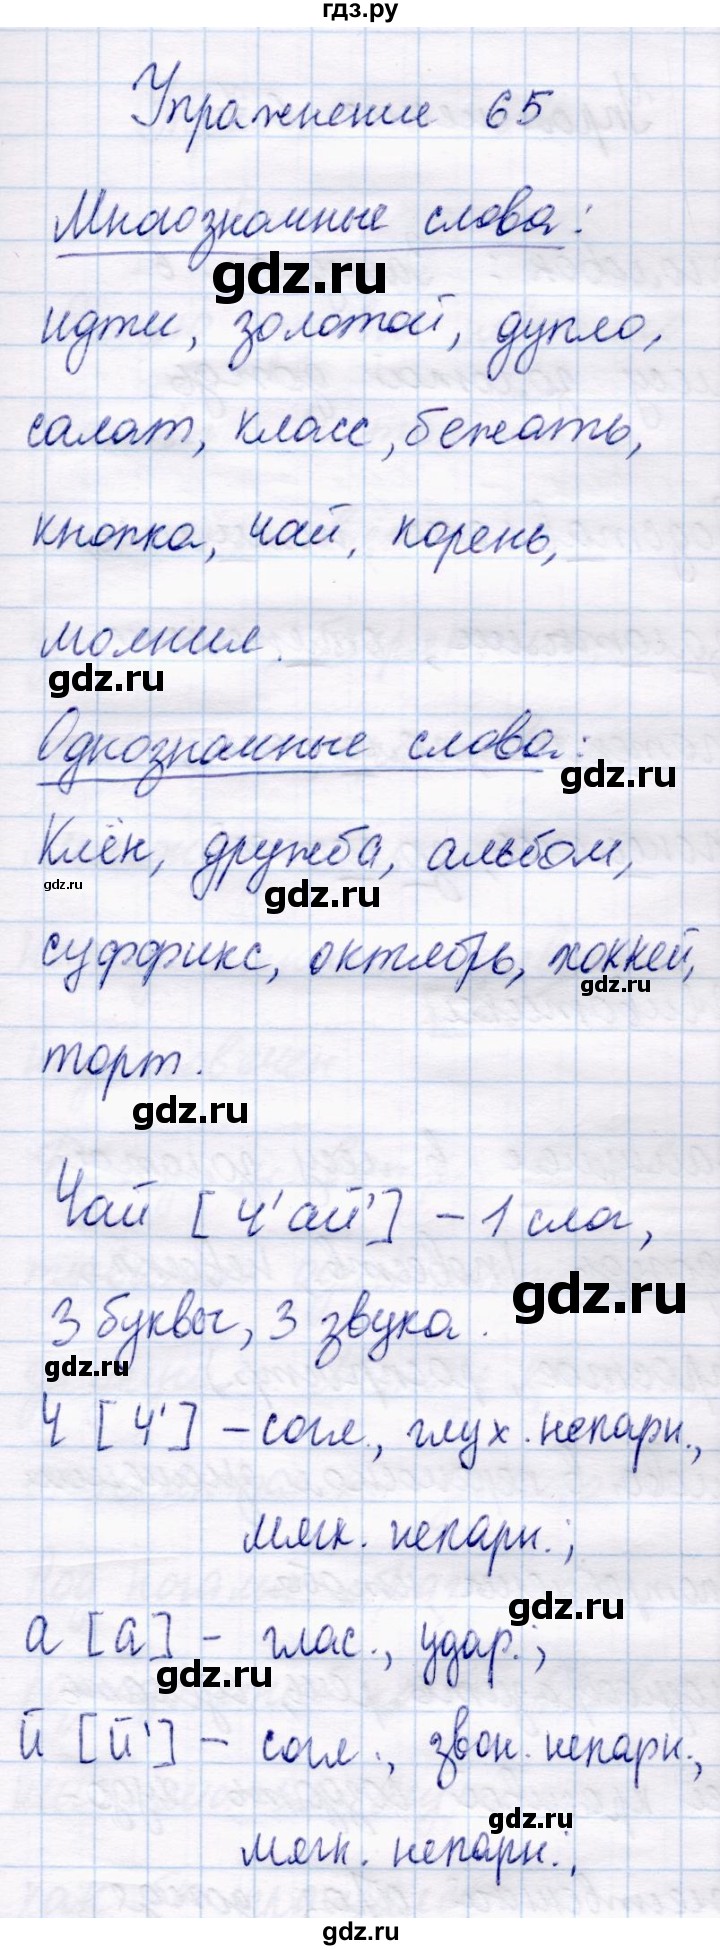 гдз.ру
Упражнение 65
Многозначные слова:
gdz.ru
идти, золотой, дупло,
салат, класс, бежать,
кнопка, чай, корень,
молния.
gdz.ru
Однозначные слова:
gdz.ru
Клён, дружба, альбом,
gdz.ru
gdz.ru
суффикс, октябрь, хоккей,
gdz.ru
торт.
gdz.ru
Чай [ч'ай'] – 1 слог,
gdz.ru
3 буквы, 3 звука.
gdz.ru
Ч [ч'] – согл., глух. непарн.,
мягк. непарн.;
gdz.ru
а [а] – глас., удар.;
gdz.ru
й [й'] – согл., звон. непарн.,
gdz.ru
мягк. непарн.;
gdz.ru